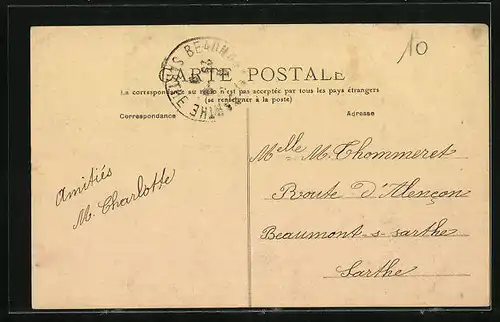 10
CARTE POSTALE
La correspondance au recto n'est pas acceptée par tous les pays étrangers
(se renseigner à la poste)
Correspondance
Adresse
Amitiés
M. Charlotte
Melle M. Thommeret
Route d'Alençon
Beaumont-s-sarthe
Sarthe